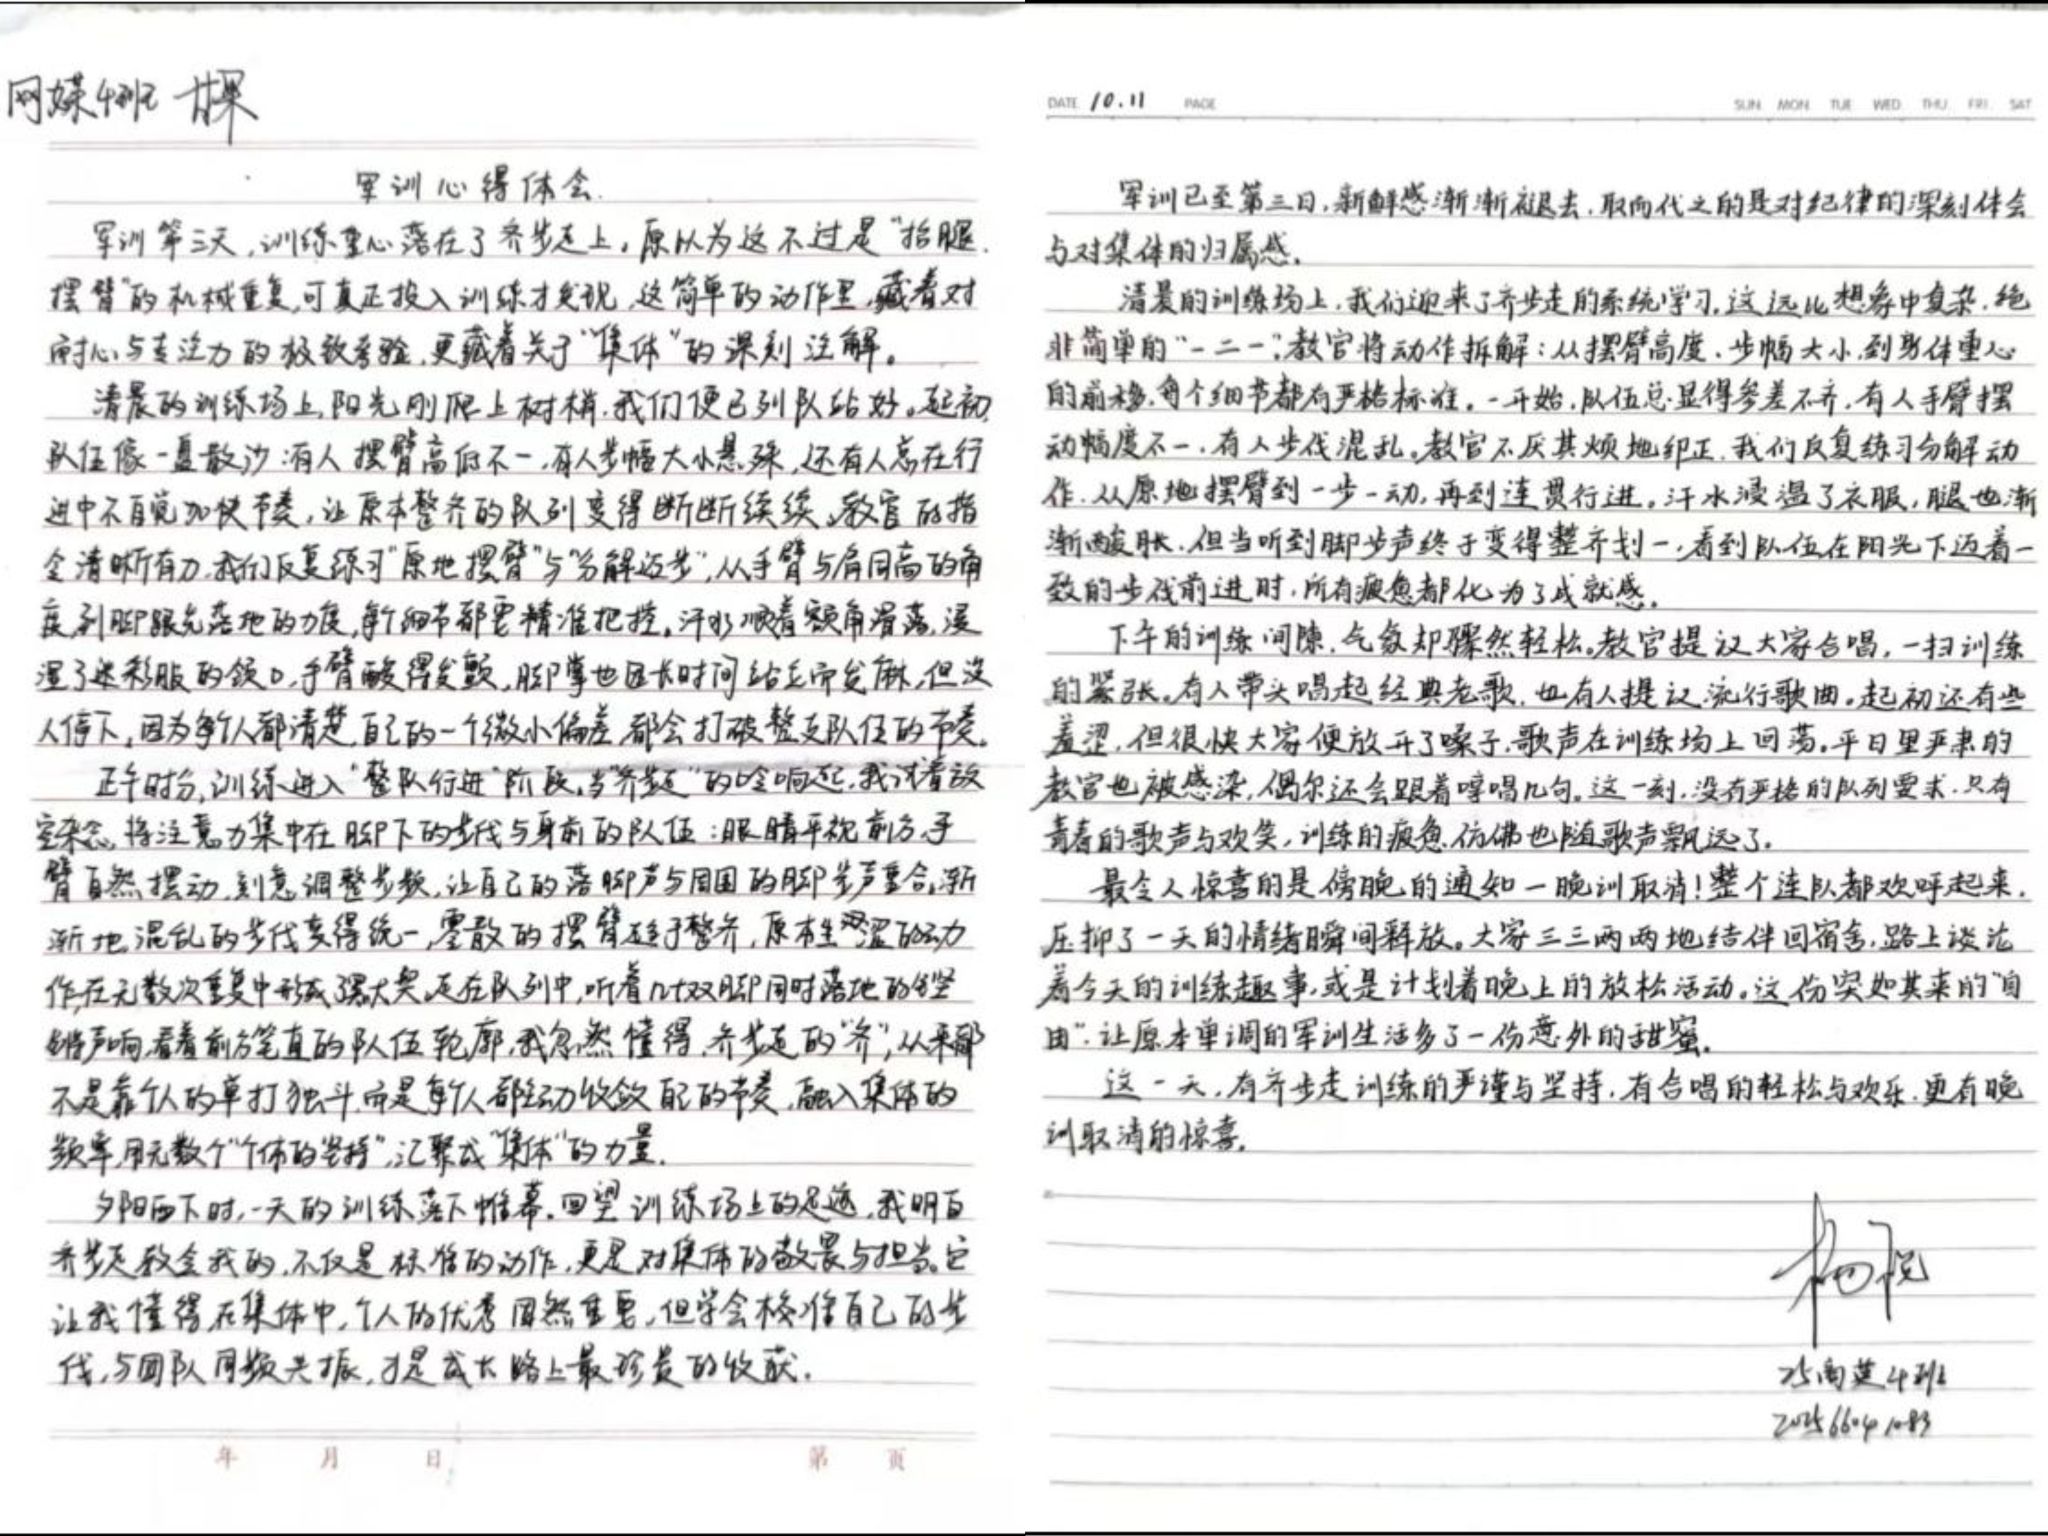 网媒4班 甘果
军训心得体会.
军训第三天,训练重心落在了齐步走上。原以为这不过是“抬腿、
摆臂”的机械重复,可真正投入训练才发现,这简单的动作里,藏着对
耐心与专注力的极致考验,更藏着关于“集体”的深刻注解。
清晨的训练场上,阳光刚爬上树梢,我们便已列队站好。起初,
队伍像一盘散沙:有人摆臂高低不一,有人步幅大小悬殊,还有人总在行
进中不自觉加快节奏,让原本整齐的队列变得断断续续。教官的指
令清晰有力,我们反复练习“原地摆臂”与“分解迈步”,从手臂与肩同高的角
度,到脚跟先落地的力度,每个细节都要精准把控。汗水顺着额角滑落,浸
湿了迷彩服的领口,手臂酸得发颤,脚掌也因长时间站立而发麻,但没
人停下,因为每个人都清楚,自己的一个微小偏差,都会打破整支队伍的节奏。
正午时分,训练进入“整队行进”阶段。当“齐步走”的口令响起,我试着放
空杂念,将注意力集中在脚下的步伐与身前的队伍:眼睛平视前方,手
臂自然摆动,刻意调整步频,让自己的落脚声与周围的脚步声重合。渐
渐地,混乱的步伐变得统一,零散的摆臂趋于整齐,原本生涩的动
作,在无数次重复中形成了强大默契。走在队列中,听着几十双脚同时落地的铿
锵声响,看着前方笔直的队伍轮廓,我忽然懂得,齐步走的“齐”,从来都
不是靠个人的单打独斗,而是每个人都主动收敛自己的节奏,融入集体的
频率,用无数个“个体的坚持”,汇聚成“集体”的力量.
夕阳西下时,一天的训练落下帷幕。回望训练场上的足迹,我明白
齐步走教会我的,不仅是标准的动作,更是对集体的敬畏与担当。它
让我懂得,在集体中,个人的优秀固然重要,但学会校准自己的步
伐,与团队同频共振,才是成长路上最珍贵的收获.
年 月 日 第 页
DATE 10.11 PAGE SUN MON TUE WED THU FRI SAT
军训已至第三日,新鲜感渐渐褪去,取而代之的是对纪律的深刻体会
与对集体的归属感。
清晨的训练场上,我们迎来了齐步走的系统学习。这远比想象中复杂,绝
非简单的“一二一”。教官将动作拆解:从摆臂高度、步幅大小,到身体重心
的前移,每个细节都有严格标准。一开始,队伍总显得参差不齐,有人手臂摆
动幅度不一,有人步伐混乱。教官不厌其烦地纠正,我们反复练习分解动
作,从原地摆臂到一步一动,再到连贯行进。汗水浸湿了衣服,腿也渐
渐酸胀,但当听到脚步声终于变得整齐划一,看到队伍在阳光下迈着一
致的步伐前进时,所有疲惫都化为了成就感。
下午的训练间隙,气氛却骤然轻松。教官提议大家合唱,一扫训练
的紧张。有人带头唱起经典老歌,也有人提议流行歌曲。起初还有些
羞涩,但很快大家便放开了嗓子,歌声在训练场上回荡。平日里严肃的
教官也被感染,偶尔还会跟着哼唱几句。这一刻,没有严格的队列要求,只有
青春的歌声与欢笑,训练的疲惫仿佛也随歌声飘远了。
最令人惊喜的是傍晚的通知一晚训取消!整个连队都欢呼起来,
压抑了一天的情绪瞬间释放。大家三三两两地结伴回宿舍,路上谈论
着今天的训练趣事,或是计划着晚上的放松活动。这份突如其来的“自
由”,让原本单调的军训生活多了一份意外的甜蜜。
这一天,有齐步走训练的严谨与坚持,有合唱的轻松与欢乐,更有晚
训取消的惊喜。
杨悦
25商英4班